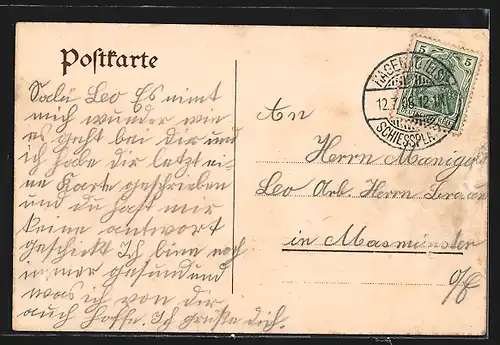 Postkarte
Salü Leo Es nimt
mich wunder wie
es geht bei dir und
ich habe dir letzt ei-
ne Karte geschrieben
und du hast mir
keine antwort
geschickt Ich bine noch
immer gesund und
was ich von dir
auch hoffe. Ich grüße dich.
5 5
HAGENAU (ELS.)
12.7.09 12-1 N
SCHIESSPLATZ
An
Herrn Manigold
Leo Arb. Herrn
in Masmünster